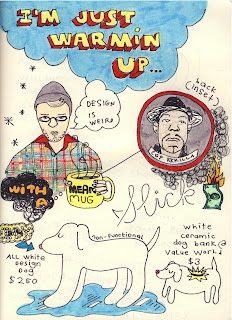 I'M JUST
WARMIN
UP...
DESIGN
IS
WEIRD
(inset)
WITH
A
MEAN
MUG
Slick
Non-Functional
ALL WHITE
DESIGN
DOG
white
ceramic
dog bank @
Value World
$3